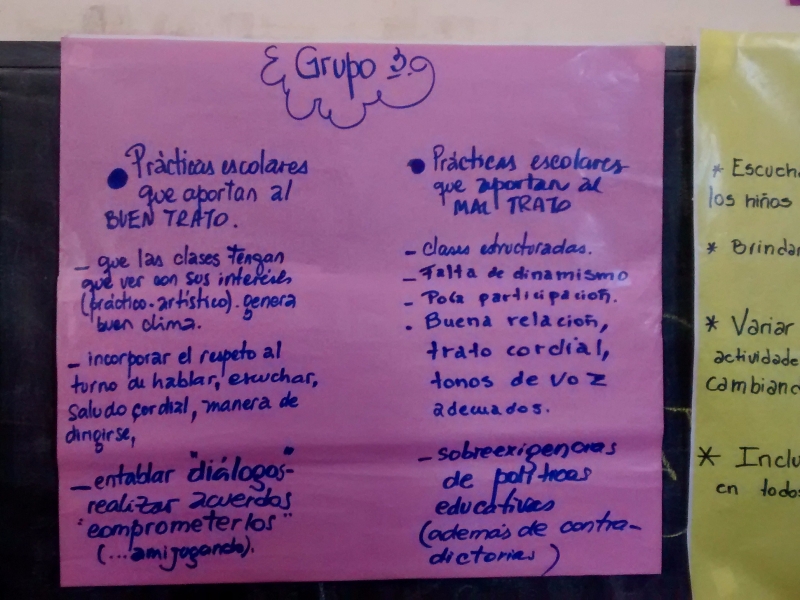 Grupo 3.
● Prácticas escolares
que aportan al
BUEN TRATO.
- que las clases tengan
que ver con sus interéses
(práctico-artístico). genera
buen clima.
- incorporar el respeto al
turno de hablar, escuchar,
saludo cordial, manera de
dirigirse,
- entablar "diálogos"-
realizar acuerdos
"comprometerlos"
(...amijugando).
● Prácticas escolares
que aportan al
MAL TRATO
- clases estructuradas.
- Falta de dinamismo
- Poca participación.
. Buena relación,
trato cordial,
tonos de voz
adecuados.
- sobreexigencias
de políticas
educativas
(además de contra-
dictorias)
* Escucha
los niños
* Brindar
* Variar
actividade
cambiand
* Inclu
en todos